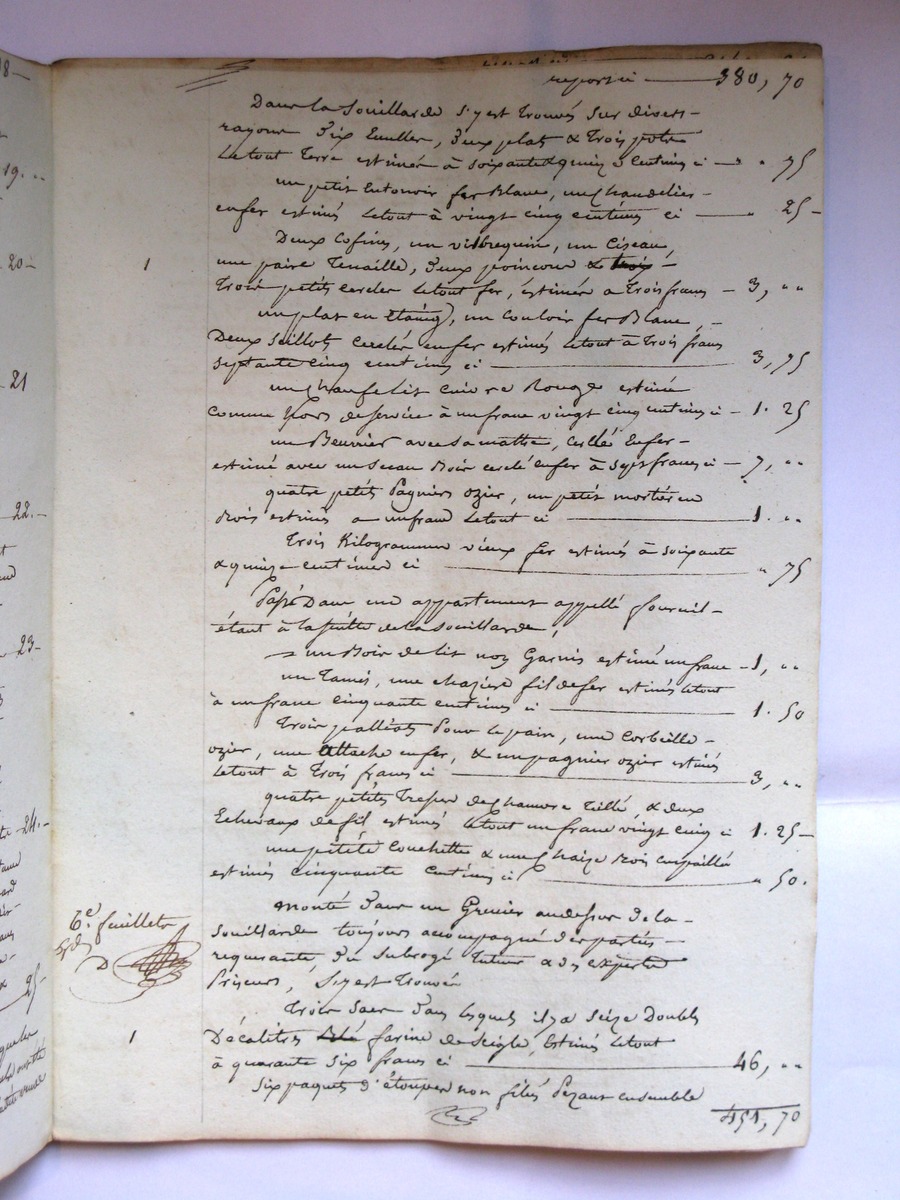 reporté ——— 380, 70
Dans la Souillarde s'y est trouvés sur divers
rayons Six Ecuelles, Deux plat & Trois pots
le tout Terre estimée à soixante & quinze centimes ci — " 75
un petit Entonoir fer Blanc, un Chandelier
en fer estimés le tout à vingt cinq centimes ci — " 25
Deux Cofins, un vilbrequin, un Ciseau,
1 une paire Tenaille, Deux poincons & trois
Trois petits cercles le tout fer, estimée a trois francs — 3, "
un plat en étaing, un Couloir fer Blanc,
Deux Seillots cerclés en fer estimés le tout à Trois francs
septante cinq centimes ci — 3, 75
un Chaufelit cuivre Rouge estimé
comme hors de service à un franc vingt cinq centimes ci — 1. 25
un Beurrier avec sa matte, cerclé en fer
estimé avec un Seau Bois cerclé en fer à sept francs ci — 7, "
quatre petits Pagniers ozier, un petit mortier en
Bois estimés a un franc le tout ci — 1. "
Trois Kilogrammes vieux fer estimés à soixante
& quinze centimes ci — " 75
Passé Dans un appartement appellé fourniel
étant à la suitte de la Souillarde,
un Bois de lit non Garnis estimé un franc — 1, "
un Tamis, une chazière fil de fer estimés le tout
à un franc cinquante centimes ci — 1. 50
Trois palliats Pour le pain, une Corbeille
ozier, une attache en fer, & un pagnier ozier estimés
le tout à Trois francs ci — 3, "
quatre petites Tresses de Chanvre Tillé, & deux
Echevaux de fil estimés le tout un franc vingt cinq ci 1. 25
une petite Couchette & une Chaize Bois empaillé
estimés cinquante centimes ci — " 50.
monté Dans un Grenier au dessus de la
6e. feuillets
Souillarde toujours accompagné des parties
requerante, Du Subrogé tuteur & des experts
Priseurs, s'y est Trouvés
Trois Sacs Dans lesquels il y a Seize Doubles
1 Décalitres Blé farine de Seigle, Estimés le tout
à quarante six francs ci — 46, "
Six paquets d'étoupes non filés Pezant ensemble
451, 70